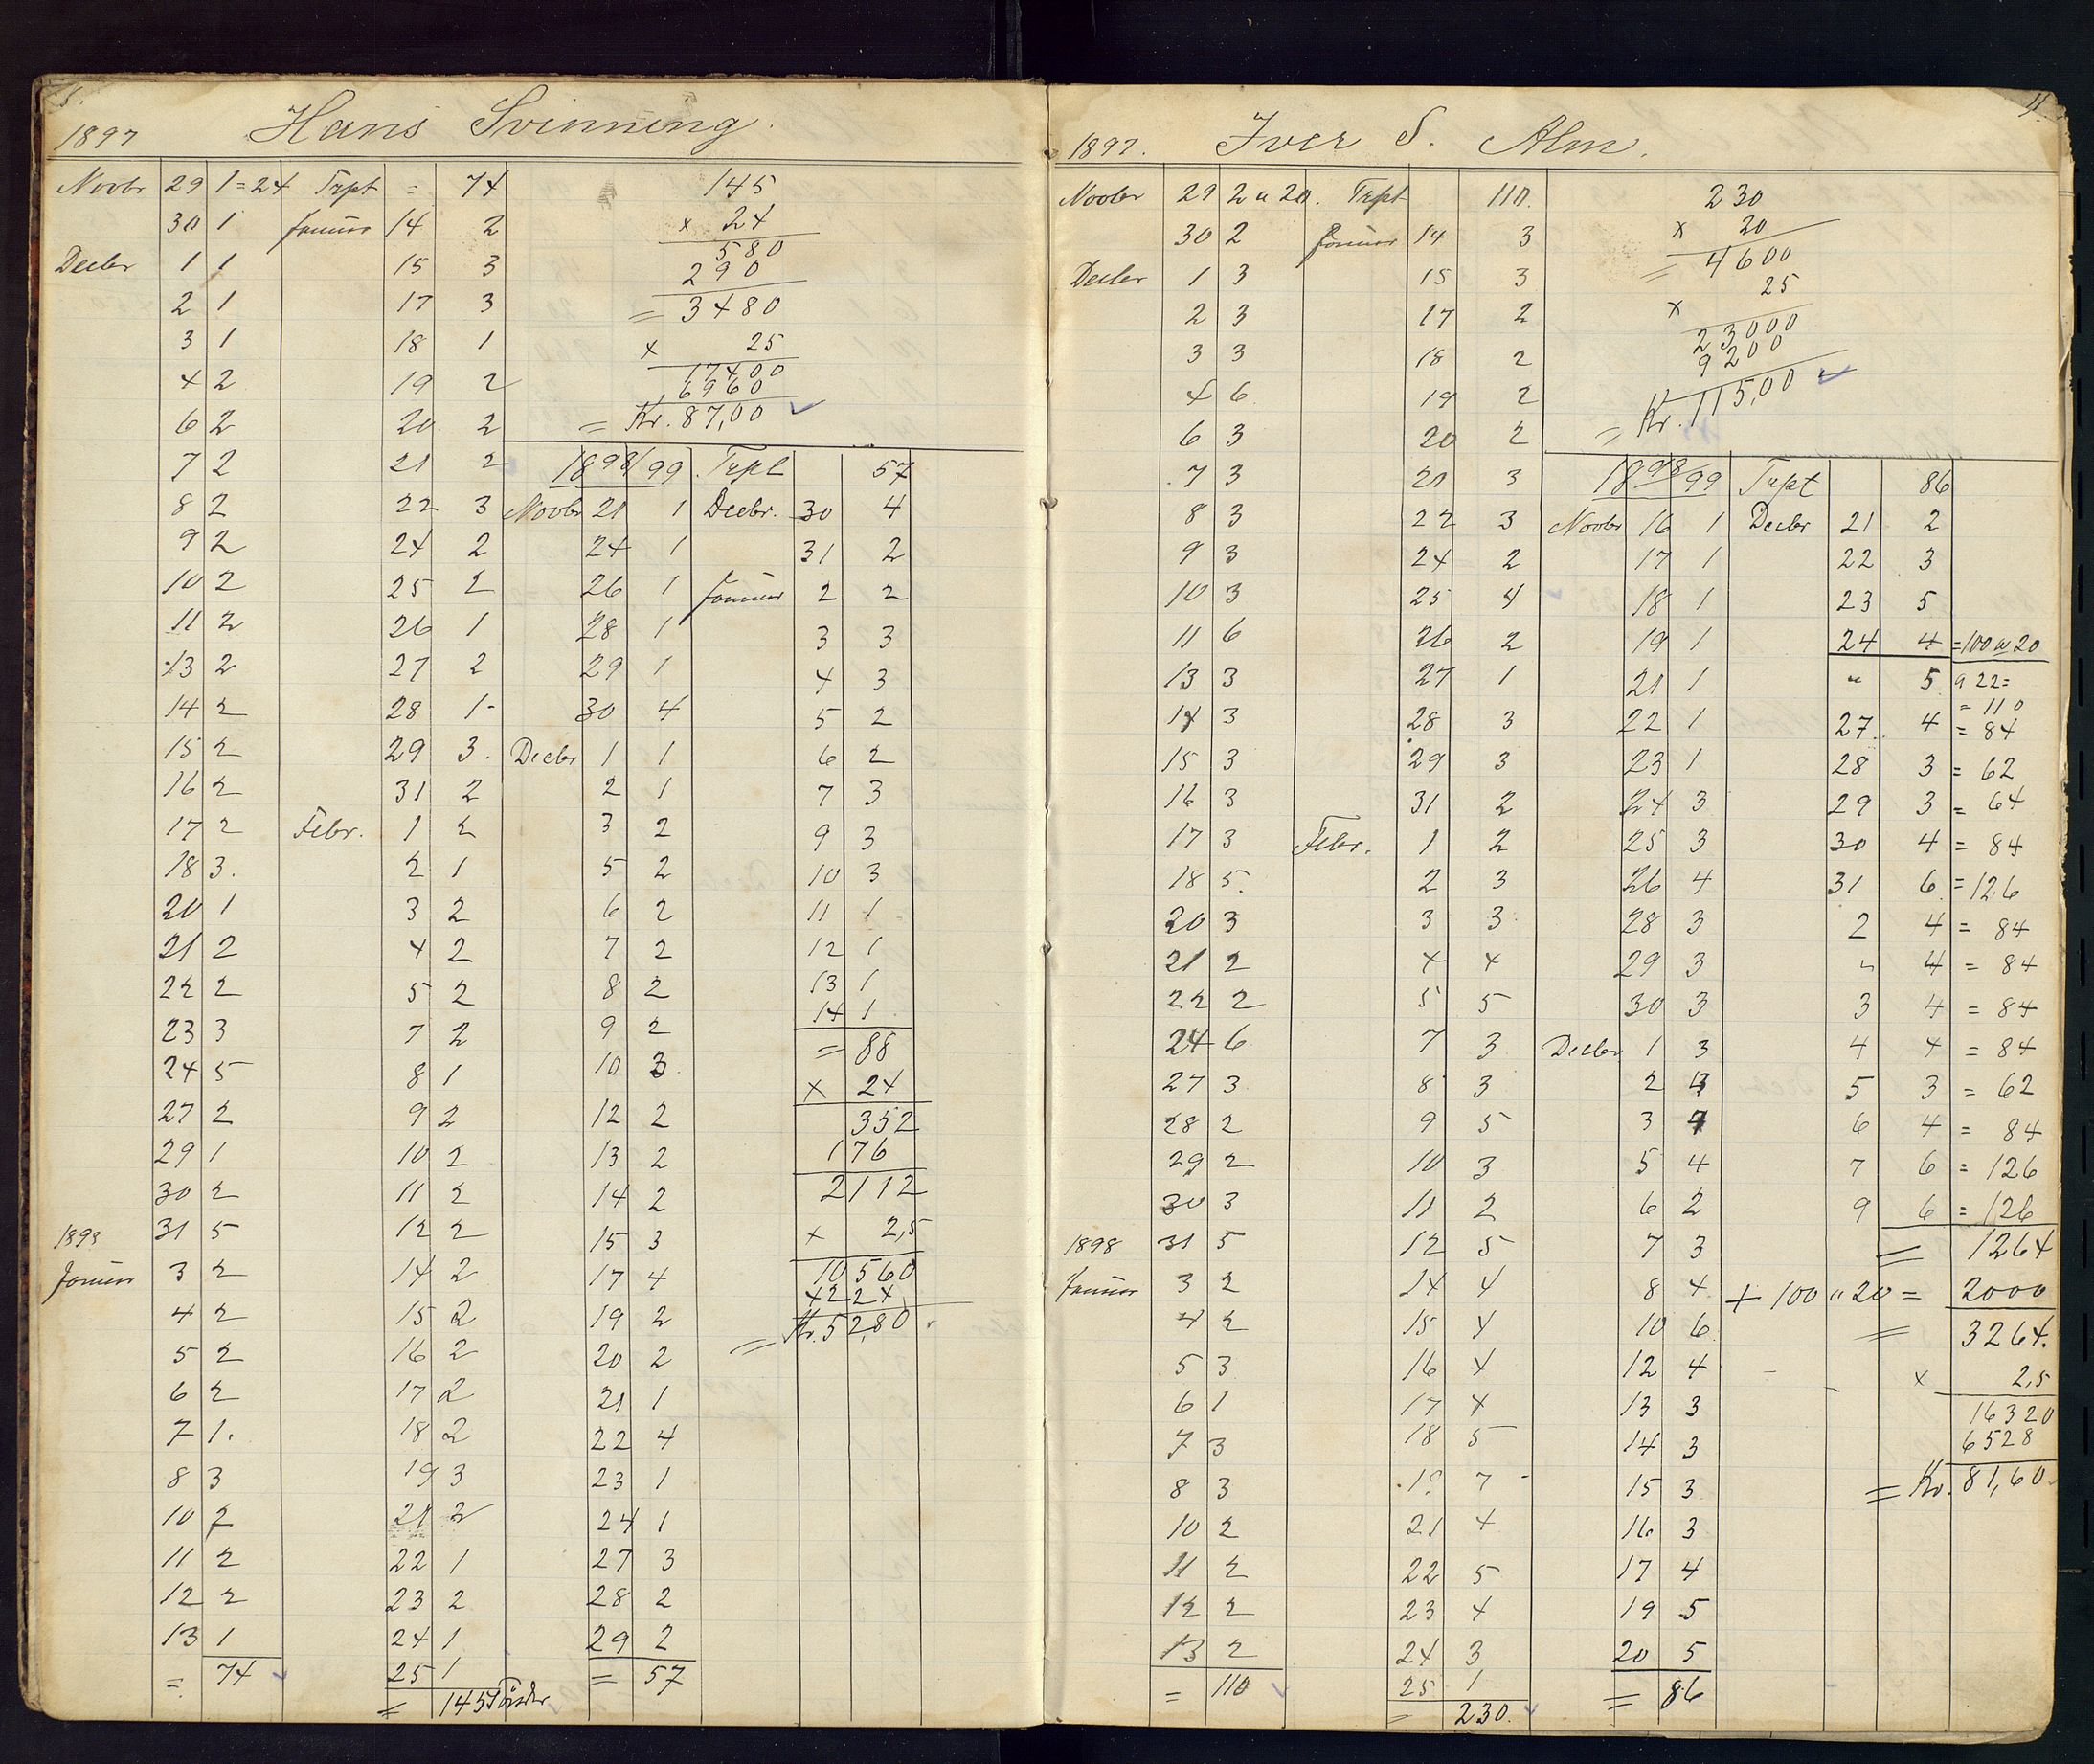 1897 Hans Svinning.
Novbr 29 1=24 Trpt = 74
30 1 Januar 14 2
Decbr 1 1 15 3
2 1 17 3
3 1 18 1
4 2 19 2
6 2 20 2
7 2 21 2
8 2 22 3
9 2 24 2
10 2 25 2
11 2 26 1
13 2 27 2
14 2 28 1
15 2 29 3.
16 2 31 2
17 2 Febr. 1 2
18 3. 2 1
20 1 3 2
21 2 4 2
22 2 5 2
23 3 7 2
24 5 8 1
27 2 9 2
29 1 10 2
30 2 11 2
31 5 12 2
1898
Januar 3 2 14 2
4 2 15 2
5 2 16 2
6 2 17 2
7 1. 18 2
8 3 19 3
10 2 21 2
11 2 22 1
12 2 23 2
13 1 24 1
= 74 25 1
= 145 Tönder
145
x 24
580
290
= 3480
x 25
17400
6960
= Kr. 87,00
1898/99 Trpt 57
Novbr 21 1 Decbr. 30 4
24 1 31 2
26 1 Januar 2 2
28 1 3 3
29 1 4 3
30 4 5 2
Decbr 1 1 6 2
2 1 7 3
3 2 9 3
5 2 10 3
6 2 11 1
7 2 12 1
8 2 13 1
14 1
9 2 = 88
10 3 x 24
12 2 352
13 2 176
14 2 2112
15 3 x 2,5
17 4 10560
4224
19 2 = Kr. 52,80.
20 2
21 1
22 4
23 1
24 1
27 3
28 2
29 2
= 57
4.
1897. Iver S. Alm.
Novbr 29 2 a 20. Trpt 110.
30 2 Januar 14 3
Decbr 1 3 15 3
2 3 17 2
3 3 18 2
4 6 19 2
6 3 20 2
7 3 21 3
8 3 22 3
9 3 24 2
10 3 25 4
11 6 26 2
13 3 27 1
14 3 28 3
15 3 29 3
16 3 31 2
17 3 Febr. 1 2
18 5. 2 3
20 3 3 3
21 2 4 4
22 2 5 5
24 6 7 3
27 3 8 3
28 2 9 5
29 2 10 3
30 3 11 2
1898 31 5 12 5
Januar 3 2 14 4
4 2 15 4
5 3 16 4
6 1 17 4
7 3 18 5
8 3 19 7
10 2 21 4
11 2 22 5
12 2 23 4
13 2 24 3
= 110 25 1
= 230.
230
x 20
= 4600
x 25
23000
9200
= Kr. 115,00
1898/99 Trpt 86
Novbr 16 1 Decbr 21 2
17 1 22 3
18 1 23 5
19 1 24 4 = 100 a 20
21 1 " 5 a 22 =
= 110
22 1 27. 4 = 84
23 1 28 3 = 62
24 3 29 3 = 64
25 3 30 4 = 84
26 4 31 6 = 126
28 3 2 4 = 84
29 3 " 4 = 84
30 3 3 4 = 84
Decbr 1 3 4 4 = 84
2 3 5 3 = 62
3 4 6 4 = 84
5 4 7 6 = 126
6 2 9 6 = 126
7 3 = 1264
8 4 + 100 a 20 = 2000
10 6 = 3264.
12 4 x 2,5
13 3 16320
14 3 6528
15 3 = Kr. 81,60
16 3
17 4
19 5
20 5
= 86